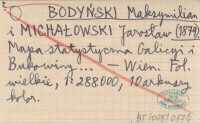 BODYŃSKI Maksymilian
i MICHAŁOWSKI Jarosław (1879)
Mapa statystyczna Galicyi i
Bukowiny... — Wien. Fol.
wielkie, 1:288000, 10 arkuszy
kolor.